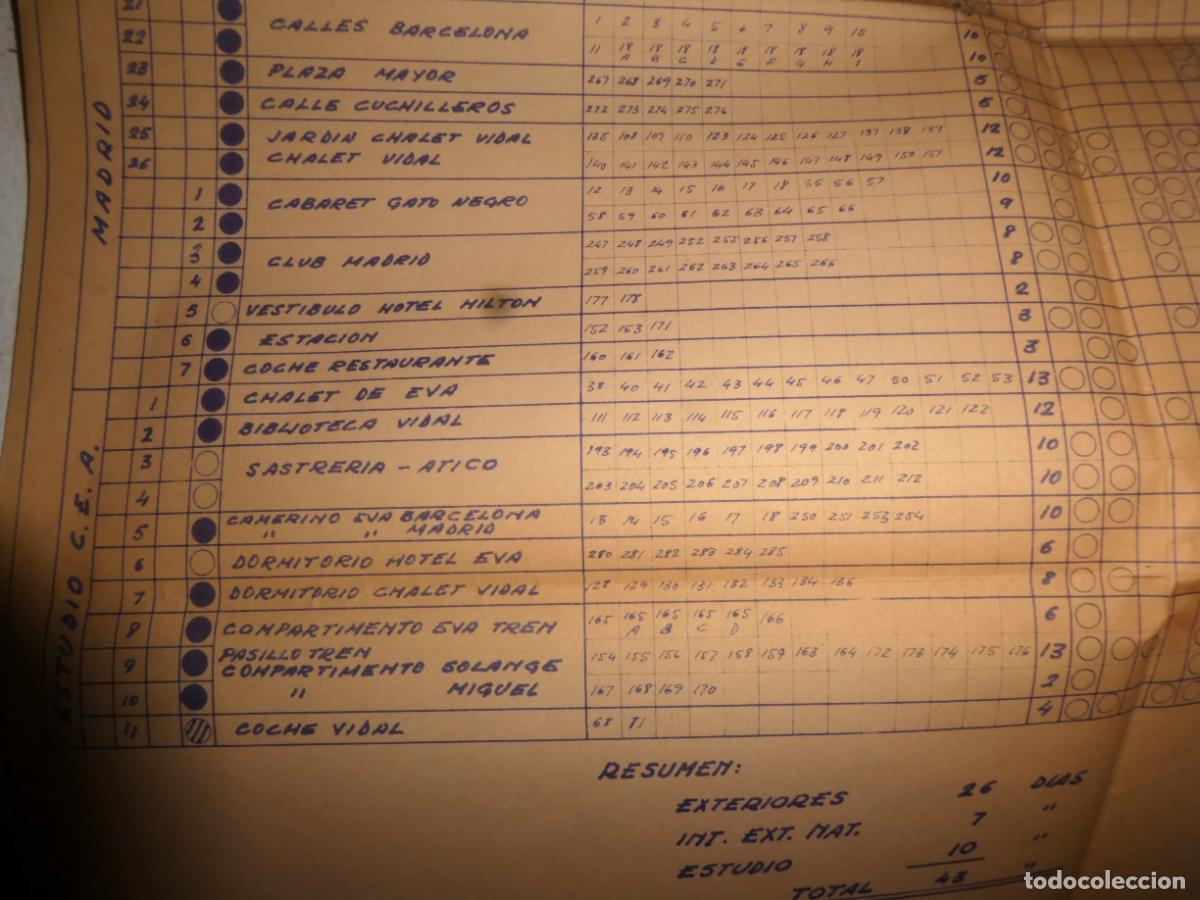 21 CALLES BARCELONA 1 2 3 4 5 6 7 8 9 10 10
22 11 18A 18B 18C 18D 18E 18F 18G 18H 18I 10
23 PLAZA MAYOR 267 268 269 270 271 5
24 CALLE CUCHILLEROS 272 273 274 275 276 5
25 JARDIN CHALET VIDAL 135 108 109 110 123 124 125 126 127 137 138 139 12
26 CHALET VIDAL 140 141 142 143 144 145 146 147 148 149 150 151 12
MADRID
1 CABARET GATO NEGRO 12 13 14 15 16 17 18 55 56 57 10
2 58 59 60 61 62 63 64 65 66 9
3 CLUB MADRID 247 248 249 252 255 256 257 258 8
4 259 260 261 262 263 264 265 266 8
5 VESTIBULO HOTEL HILTON 177 178 2
6 ESTACION 152 153 171 3
7 COCHE RESTAURANTE 160 161 162 3
ESTUDIO C.E.A.
1 CHALET DE EVA 38 40 41 42 43 44 45 46 47 50 51 52 53 13
2 BIBLIOTECA VIDAL 111 112 113 114 115 116 117 118 119 120 121 122 12
3 SASTRERIA - ATICO 193 194 195 196 197 198 199 200 201 202 10
4 203 204 205 206 207 208 209 210 211 212 10
5 CAMERINO EVA BARCELONA 13 14 15 16 17 18 250 251 253 254 10
" " MADRID
6 DORMITORIO HOTEL EVA 280 281 282 283 284 285 6
7 DORMITORIO CHALET VIDAL 128 129 130 131 132 133 134 136 8
8 COMPARTIMENTO EVA TREN 165 165A 165B 165C 165D 166 6
9 PASILLO TREN 154 155 156 157 158 159 163 164 172 173 174 175 176 13
COMPARTIMENTO SOLANGE
10 " MIGUEL 167 168 169 170 2
11 COCHE VIDAL 68 81 4
RESUMEN:
EXTERIORES 26 DIAS
INT. EXT. NAT. 7 "
ESTUDIO 10 "
TOTAL 43 "
todocoleccion